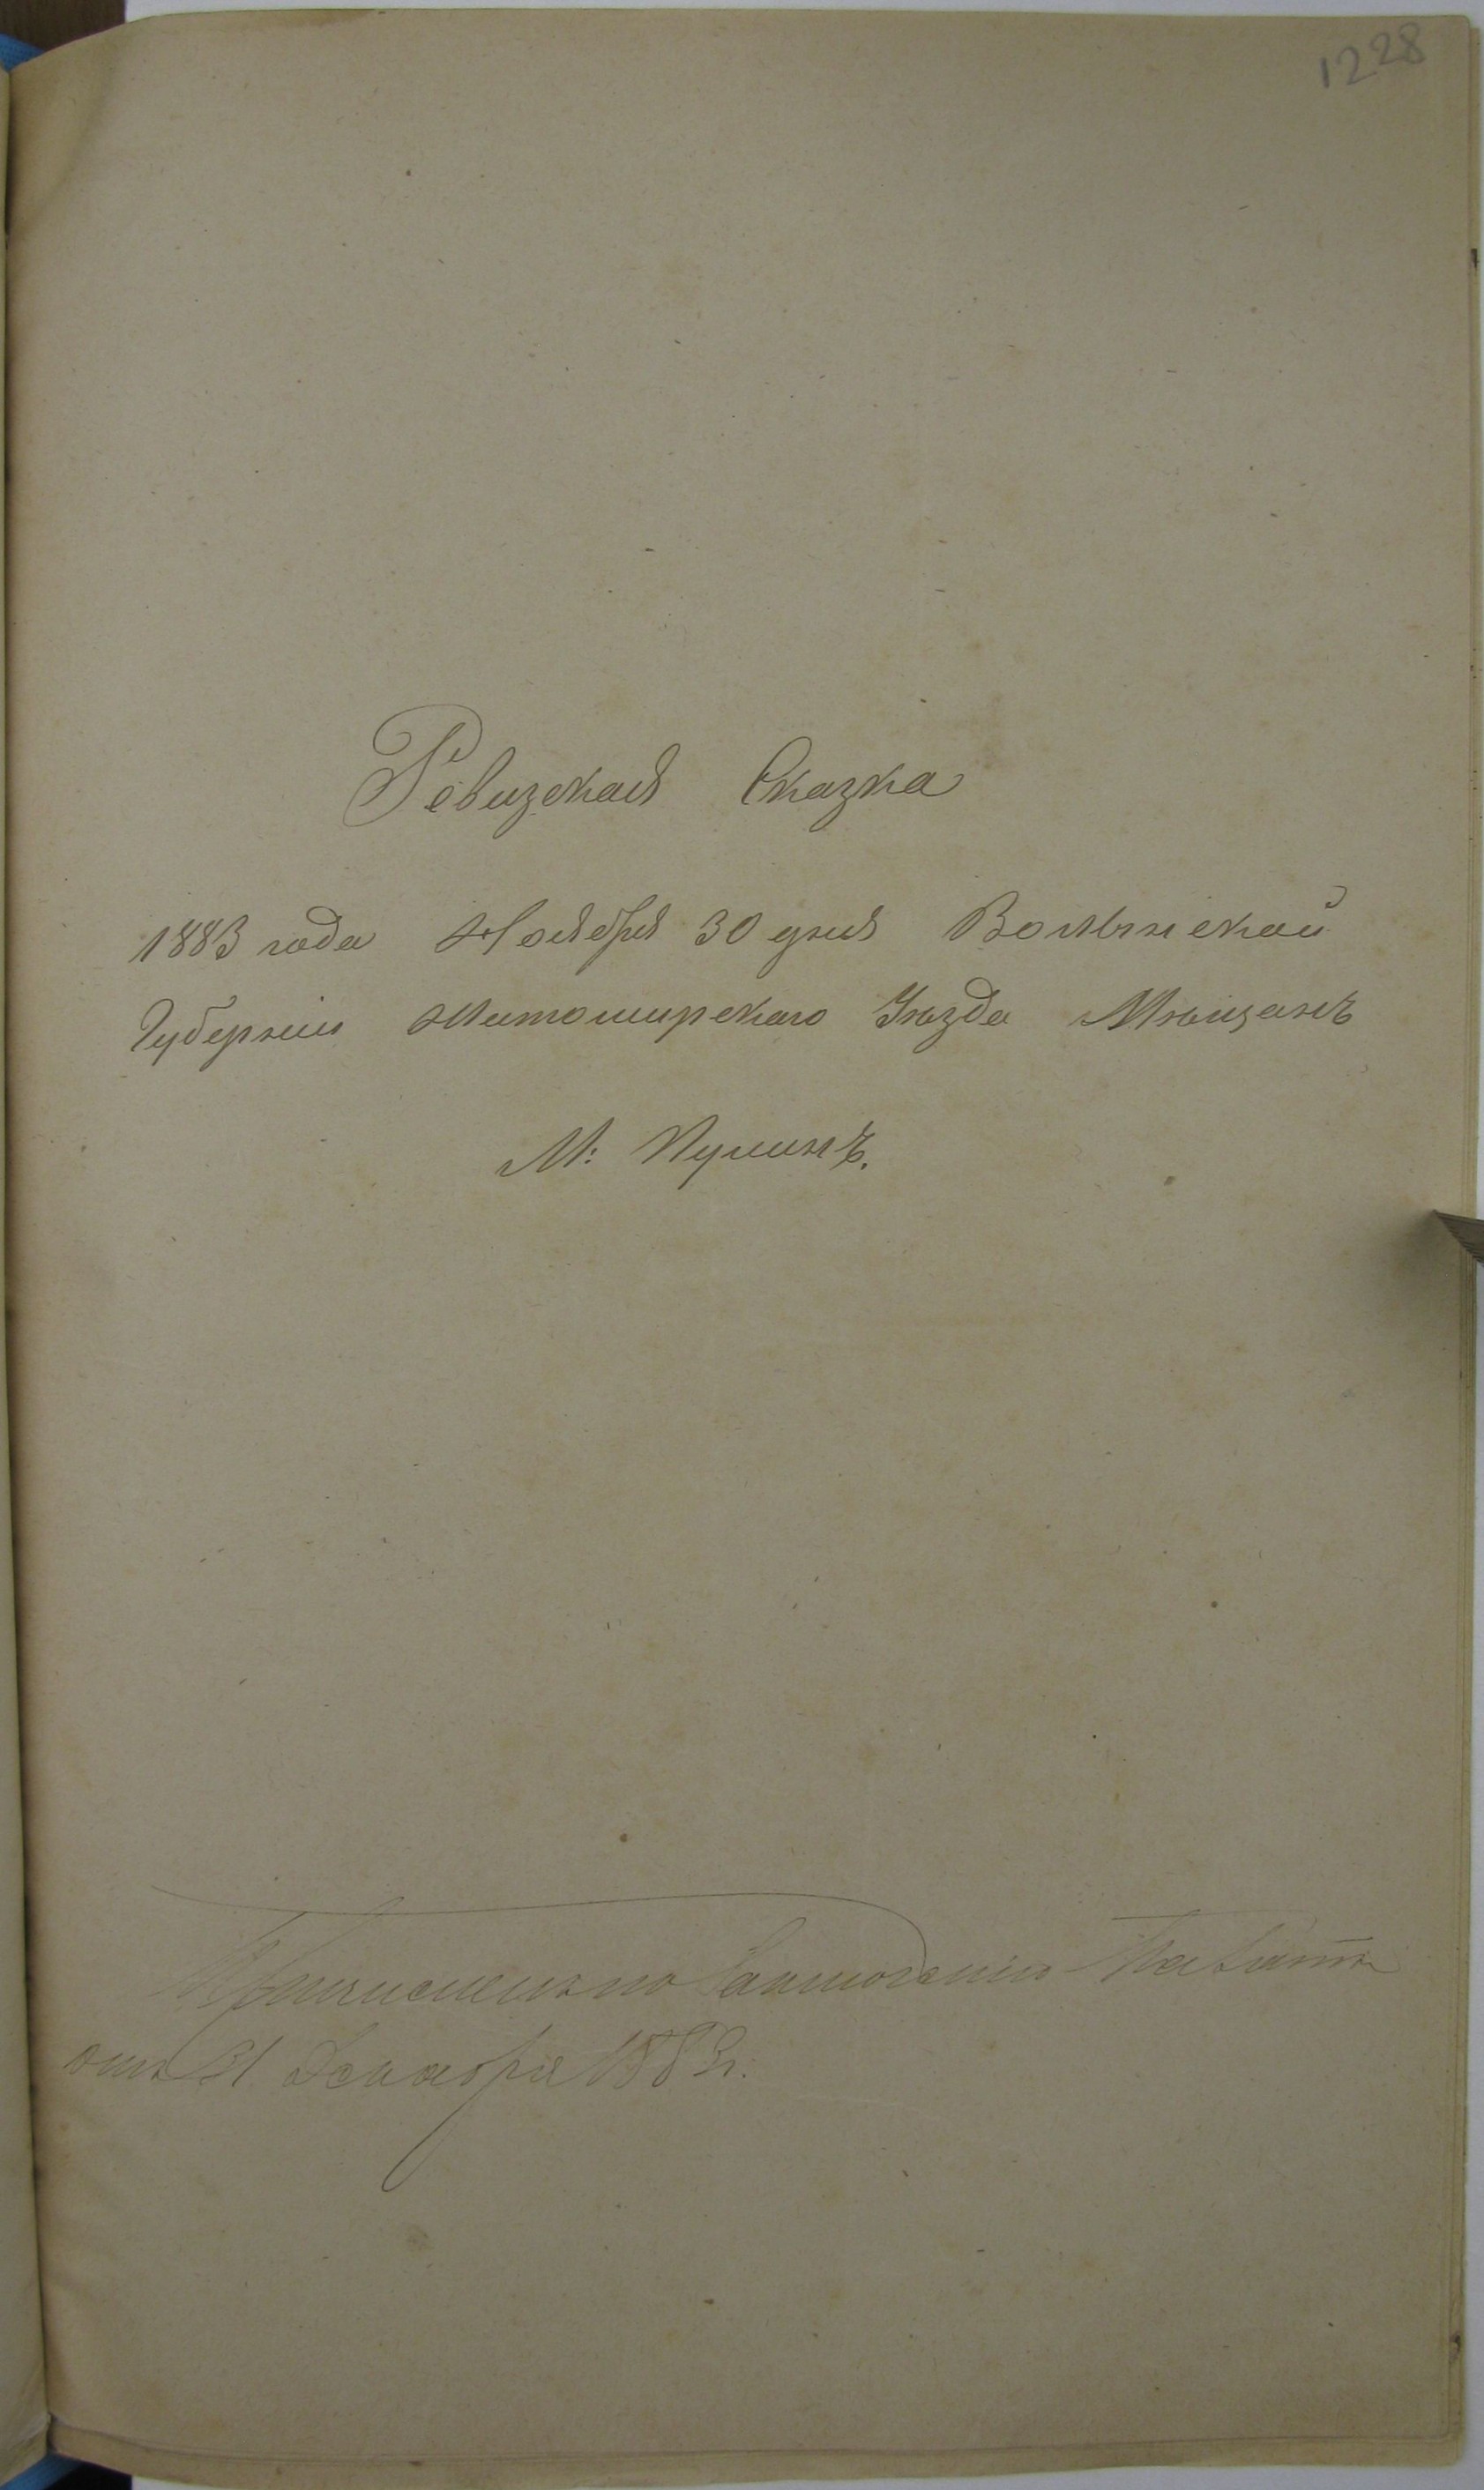 1228
Ревизская Сказка
1883 года Ноября 30 дня Волынской
Губерніи Житомирскаго Уѣзда Мѣщанъ
М: Пулинъ.
Причислены по Заключенію Палаты
отъ 31 Декабря 1883 г.